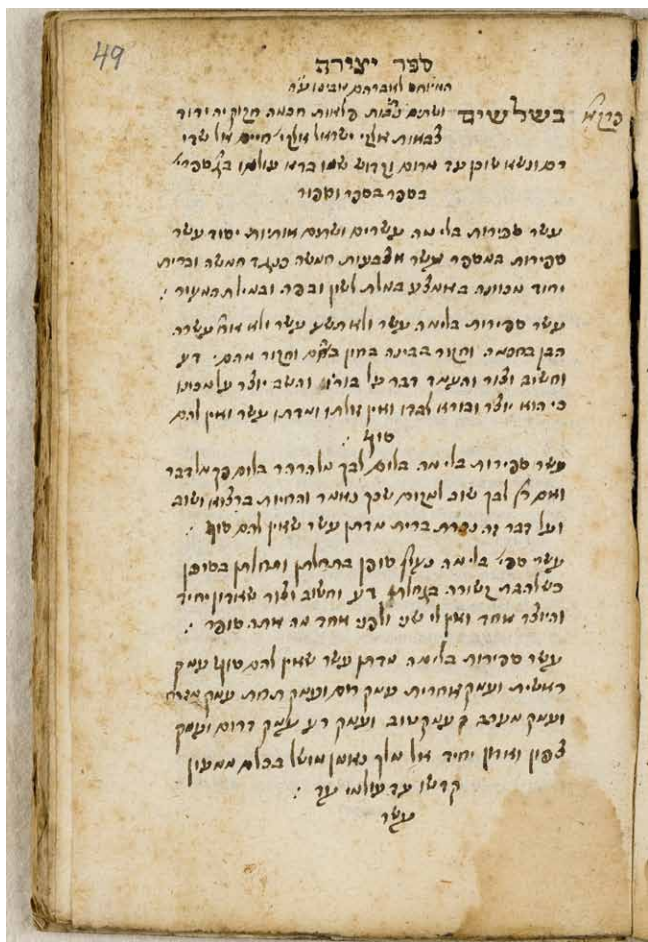 49
ספר יצירה
המיוחס לאברהם אבינו ע״ה
פרק א׳ בשלשים ושתים נתיבות פלאות חכמה חקוק יה יהוד
צבאות אלקי ישראל אלקי׳ חיים אל שדי
רם ונשא שוכן עד מרום וקדוש שמו ברא עולמו בג׳ ספרי׳
בספר בספר וספור
עשר ספירות בלימה. עשרים ושתים אותיות יסוד עשר
ספירות במספר עשר אצבעות חמשה כנגד חמשה וברית
יחוד מכוונה באמצע במלת לשון ובפה. ובמילת המעור :
עשר ספירות בלימה עשר ולא תשע עשר ולא אחד עשרה.
הבן בחכמה. וחכור בבינה בחון בהם וחקור מהם. דע
וחשוב וצור והעמד דבר על בוריו והשב יוצר על מכונו
כי הוא יוצר ובורא לבדו ואין זולתו ומדתו עשר ואין להם
סוף :
עשר ספירות בלימה. בלום לבך מלהרהר בלום פיך מלדבר
ואם רץ לבך שוב למקום שכך נאמר והחיות ברצוא ושוב
ועל דבר זה נכרת ברית מדתן עשר שאין להם סוף :
עשר ספי׳ בלימה נעוץ סופן בתחלתן ותחלתן בסופן
כשלהבת קשורה בגחלת. דע וחשוב וצור שאדון יחיד
והיוצר אחד ואין לו שני ולפני אחד מה אתה סופר :
עשר ספירות בלימה מדתן עשר שאין להם סוף עמק
ראשית ועמק אחרית עמק רום ועמק תחת עמק מזרח
ועמק מערב עמק טוב ועמק רע עמק דרום ועמק
צפון ואדון יחיד אל מלך נאמן מושל בכלם ממעון
קדשו עד עולמי עד :
עשר